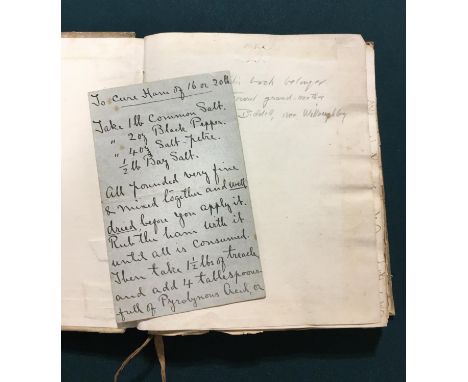 To Cure Ham of 16 or 20lb
Take 1lb Common Salt.
" 2oz Black Pepper.
" 4oz Salt-petre.
½ lb Bay Salt.
All pounded very fine
& mixed together and well
dried before you apply it.
Rub the ham with it
until all is consumed.
Then take 1½ lbs of treacle
and add 4 tablespoons
full of Pyrolynous Acid, or
book belonged
great grand-mother
Liddell, née Willoughby